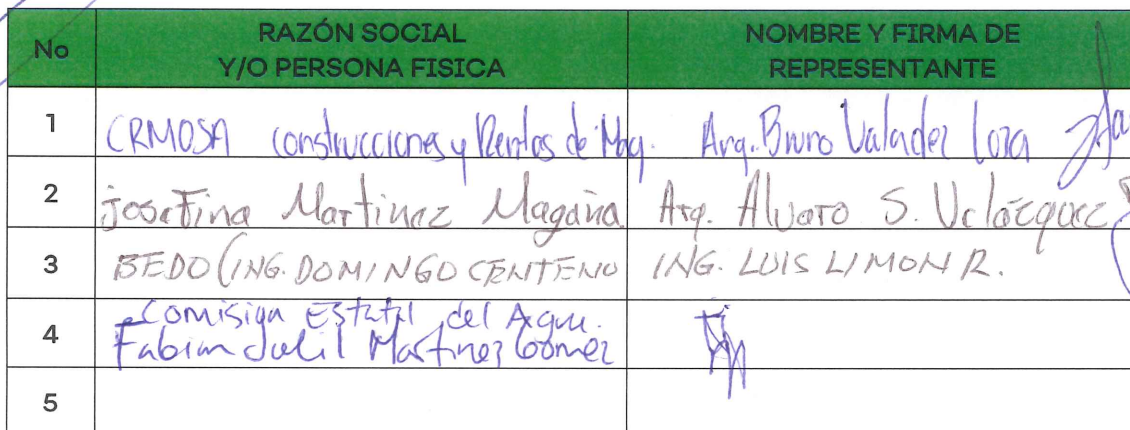 No RAZÓN SOCIAL Y/O PERSONA FISICA NOMBRE Y FIRMA DE REPRESENTANTE
1 CRMOSA construcciones y Rentas de Maq. Arq. Bruno Valadez Loza
2 josefina Martinez Magaña Arq. Alvaro S. Velázquez
3 BEDO (ING. DOMINGO CENTENO ING. LUIS LIMON R.
4 Comisión Estatal del Agua.
Fabian Martinez Gomez
5